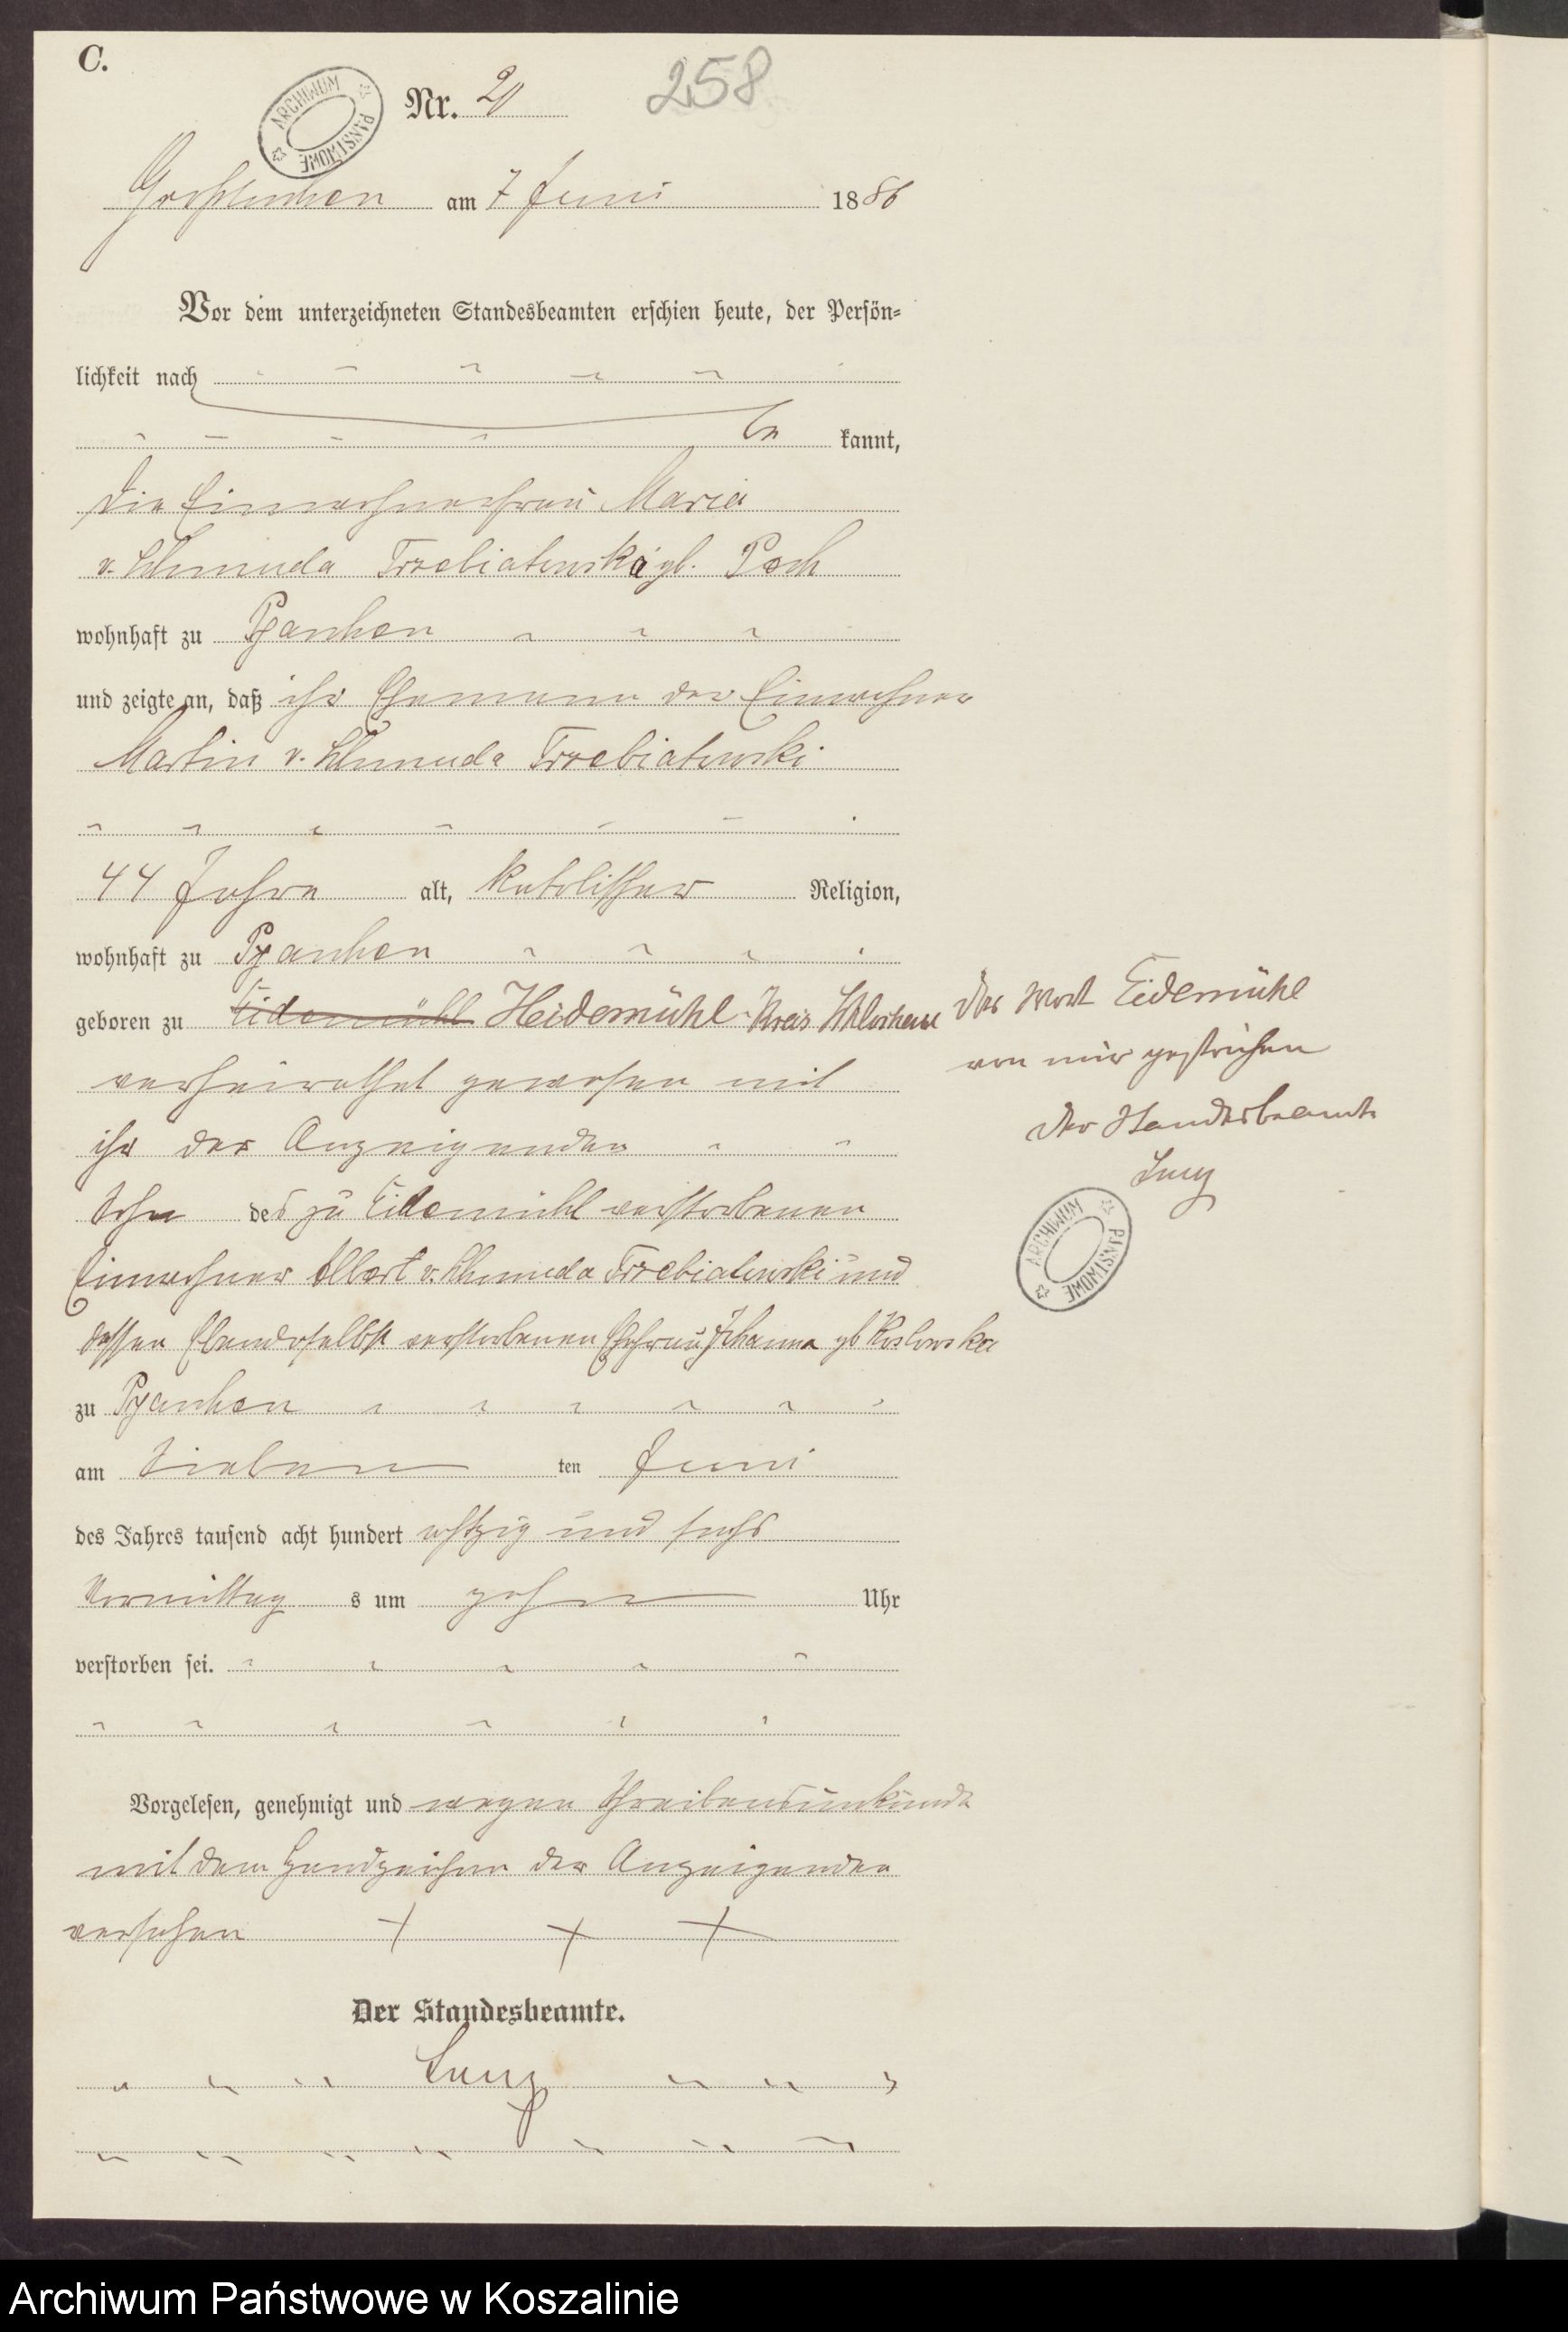 C.
ARCHIWUM PAŃSTWOWE
Nr. 21 258
am 7 Juni 1886
Vor dem unterzeichneten Standesbeamten erschien heute, der Persön-
lichkeit nach
be kannt,
die Einwohnerfrau Maria
v. Trzebiatowska gb. Pech
wohnhaft zu
und zeigte an, daß ihr Ehemann der Einwohner
Martin v. Trzebiatowski
44 Jahre alt, katolischer Religion,
wohnhaft zu
geboren zu Eidemühl Heidemühl Kreis Schlochau
verheirathet gewesen mit
ihr der Anzeigenden
Sohn des zu Eidemühl verstorbenen
Einwohner Albert v. Trzebiatowski und
dessen Ebendaselbst verstorbenen Ehefrau Johanna gb Koslowska
zu
am Sieben ten Juni
des Jahres tausend acht hundert achtzig und sechs
Vormittag s um zehn Uhr
verstorben sei.
Vorgelesen, genehmigt und wegen Schreibensunkunde
mit dem Handzeichen der Anzeigenden
versehen + + +
Der Standesbeamte.
Das Wort Eidemühl
von mir gestrichen
Der Standesbeamte
ARCHIWUM PAŃSTWOWE
Archiwum Państwowe w Koszalinie